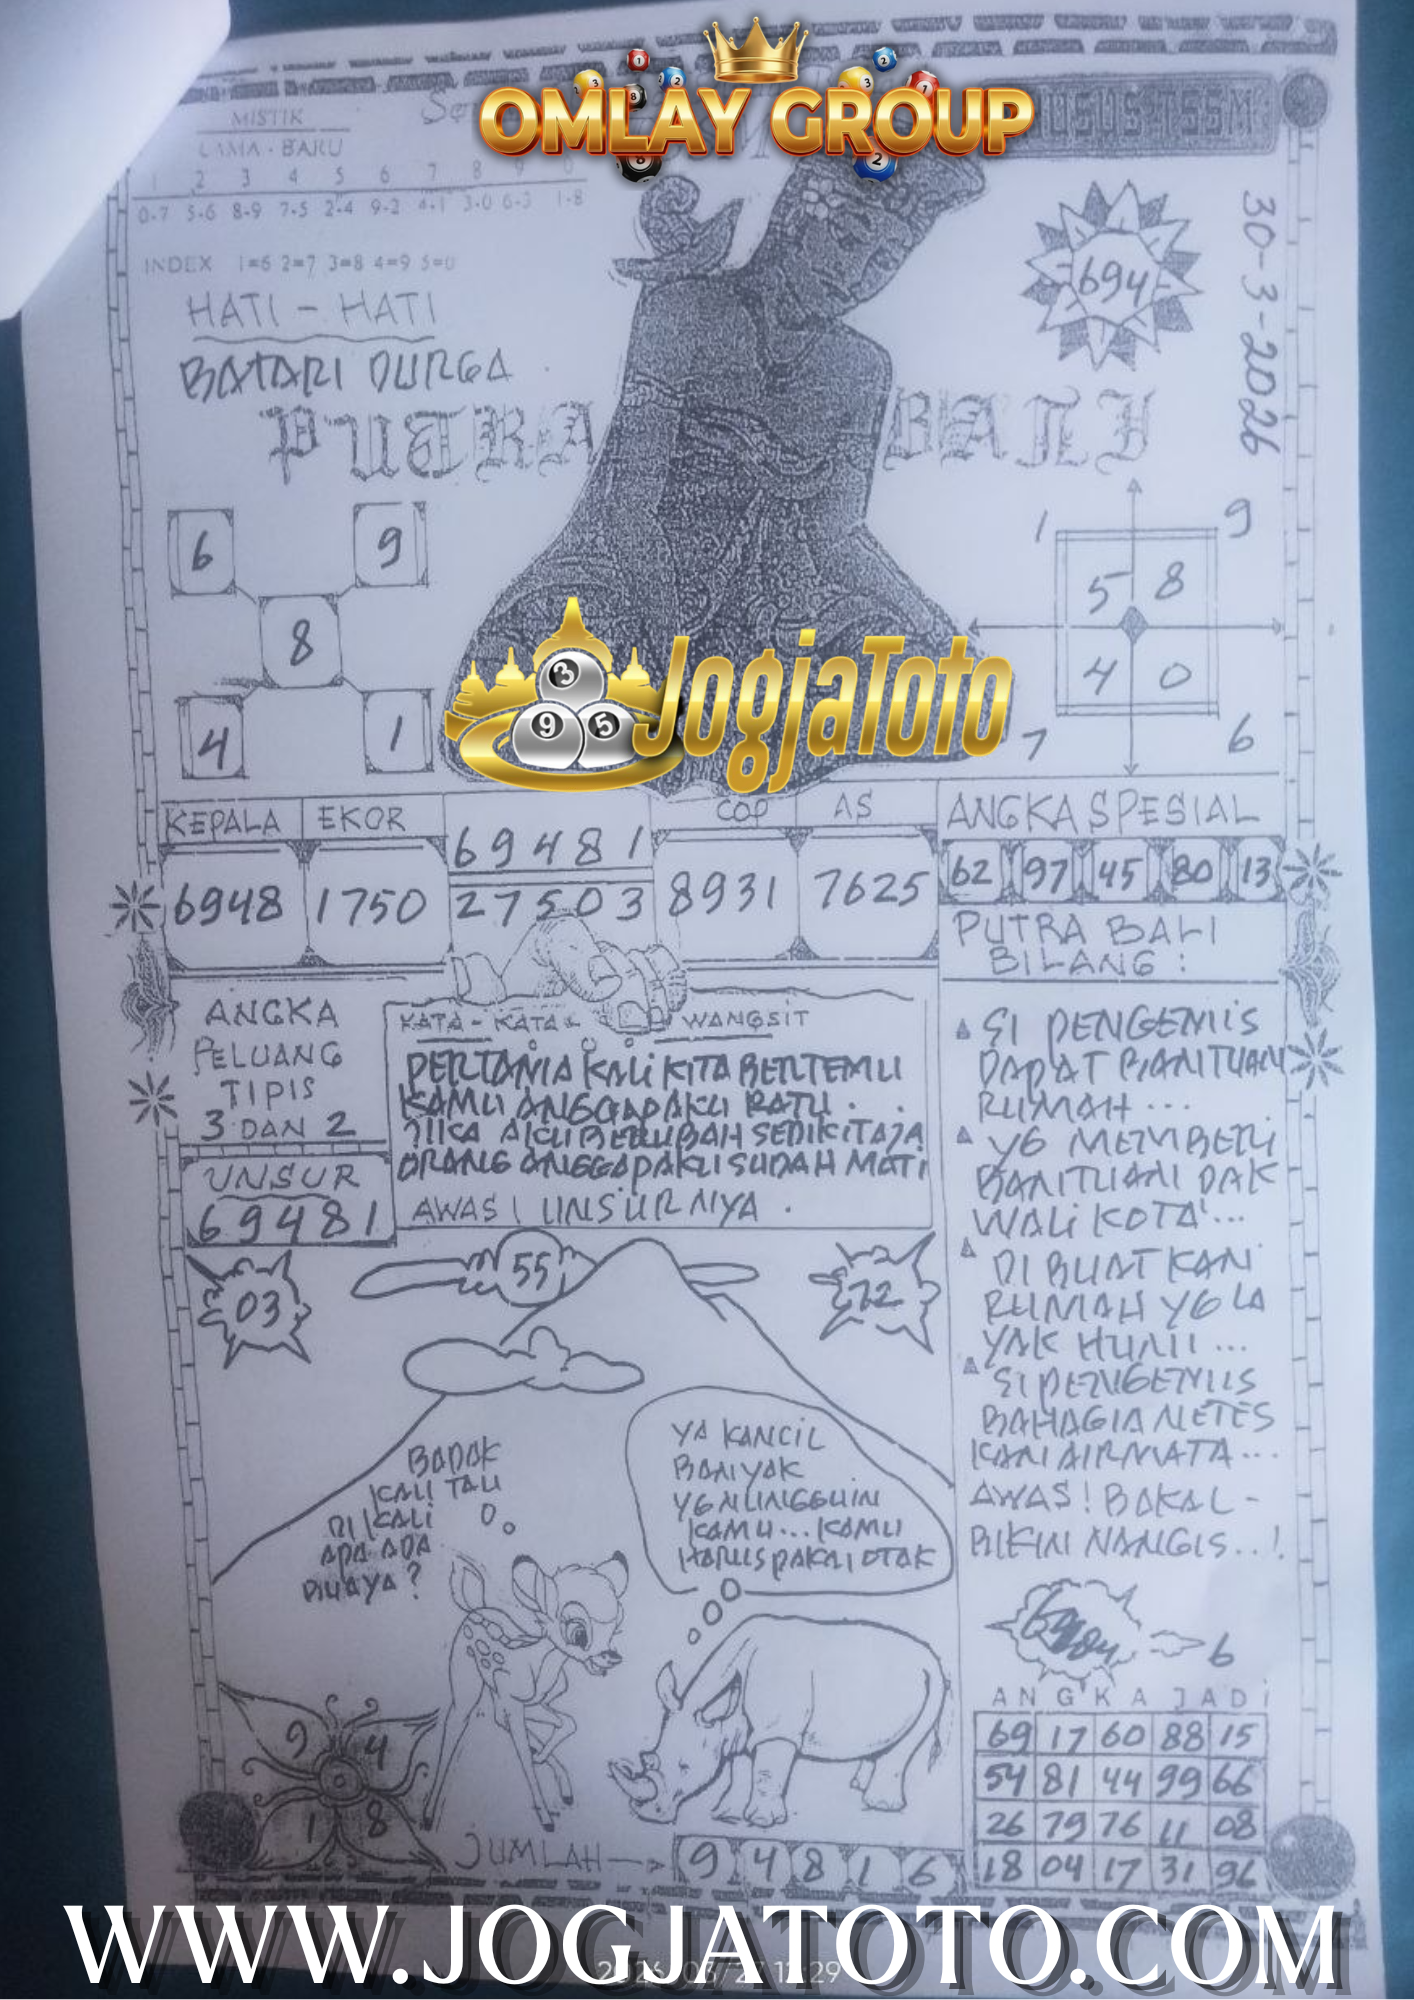 OMLAY GROUP
MISTIK
LAMA - BARU
2 3 4 5 6 7 8 9 0
0-7 5-6 8-9 7-5 2-4 9-2 4-1 3-0 6-3 1-8
INDEX 1=6 2=7 3=8 4=9 5=0
HATI - HATI
BATARI DURGA
694
30-3-2026
PUTRA BALI
6 9
8
4 1
1 9
5 8
4 0
7 6
JogjaToto
3
9 5
KEPALA EKOR 69481 COP AS
6948 1750 27503 8931 7625
ANGKA SPESIAL
62 97 45 80 13
PUTRA BALI
BILANG :
ANGKA
PELUANG
TIPIS
3 DAN 2
UNSUR
69481
KATA - KATA WANGSIT
PERTAMA KALI KITA BERTEMU
KAMU ANGGAP AKU RATU .
JIKA AKU BERUBAH SEDIKIT AJA
ORANG ANGGAP AKU SUDAH MATI
AWAS ! UNSUR NYA .
SI PENGEMIS
DAPAT BANTUAN
RUMAH ...
YG MEMBERI
BANTUAN PAK
WALI KOTA ...
DI BUAT KAN
RUMAH YG LA
YAK HUNI ...
SI PENGEMIS
BAHAGIA NETES
KAN AIR MATA ...
AWAS ! BAKAL -
BIKIN NANGIS .. !
03
55
72
BADAK
KAU TAU
DI KALI
ADA ADA
BUAYA ?
YA KANCIL
BANYAK
YG NUNGGUIN
KAMU ... KAMU
HARUS PAKAI OTAK
6
ANGKA JADI
69 17 60 88 15
54 81 44 99 66
26 79 76 11 08
18 04 17 31 96
9 4
0
1 8
JUMLAH 9 4 8 1 6
WWW.JOGJATOTO.COM